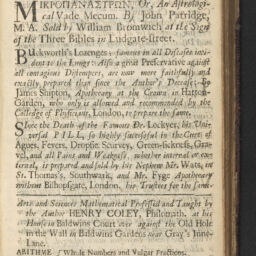 ΜΙΚΡΟΠΑΝΑΣΤΡΩΝ, Or, An Astrologi-
cal Vade Mecum. By John Patridge,
M. A. Sold by William Bromwich at the Sign
of the Three Bibles in Ludgate-street.
Buckworth's Lozenges famous in all Diseases inci-
dent to the Lungs: Also a great Preservative against
all contagious Distempers, are now more faithfully and
exactly prepared than since the Author's Decease: By
James Shipton, Apothecary at the Crown in Hatton-
Garden, who only is allowed and recommended by the
Colledge of Physicians, London, to prepare the same.
Since the Death of the Famous Dr. Lockyer, his Uni-
versal PILL, so highly successful in the Cures of
Agues, Feavers, Dropsie, Scurvey, Green-sickness, Gra-
vel, and all Pains and Weakness, whether internal or ex-
ternal, is prepared and sold by his Nephew Mr. Watts, in
St. Thomas's, Southwark, and Mr. Fyge Apothecary
without Bishopsgate, London, his Trustees for the same.
Arts and Sciences Mathematical Professed and Taught by
the Author HENRY COLEY, Philomath, at his
House in Baldwins Court over against the Old Hole
in the Wall in Baldwins Gardens near Gray's Inne-
Lane.
ARITHME Whole Numbers and Vulgar Fractions,